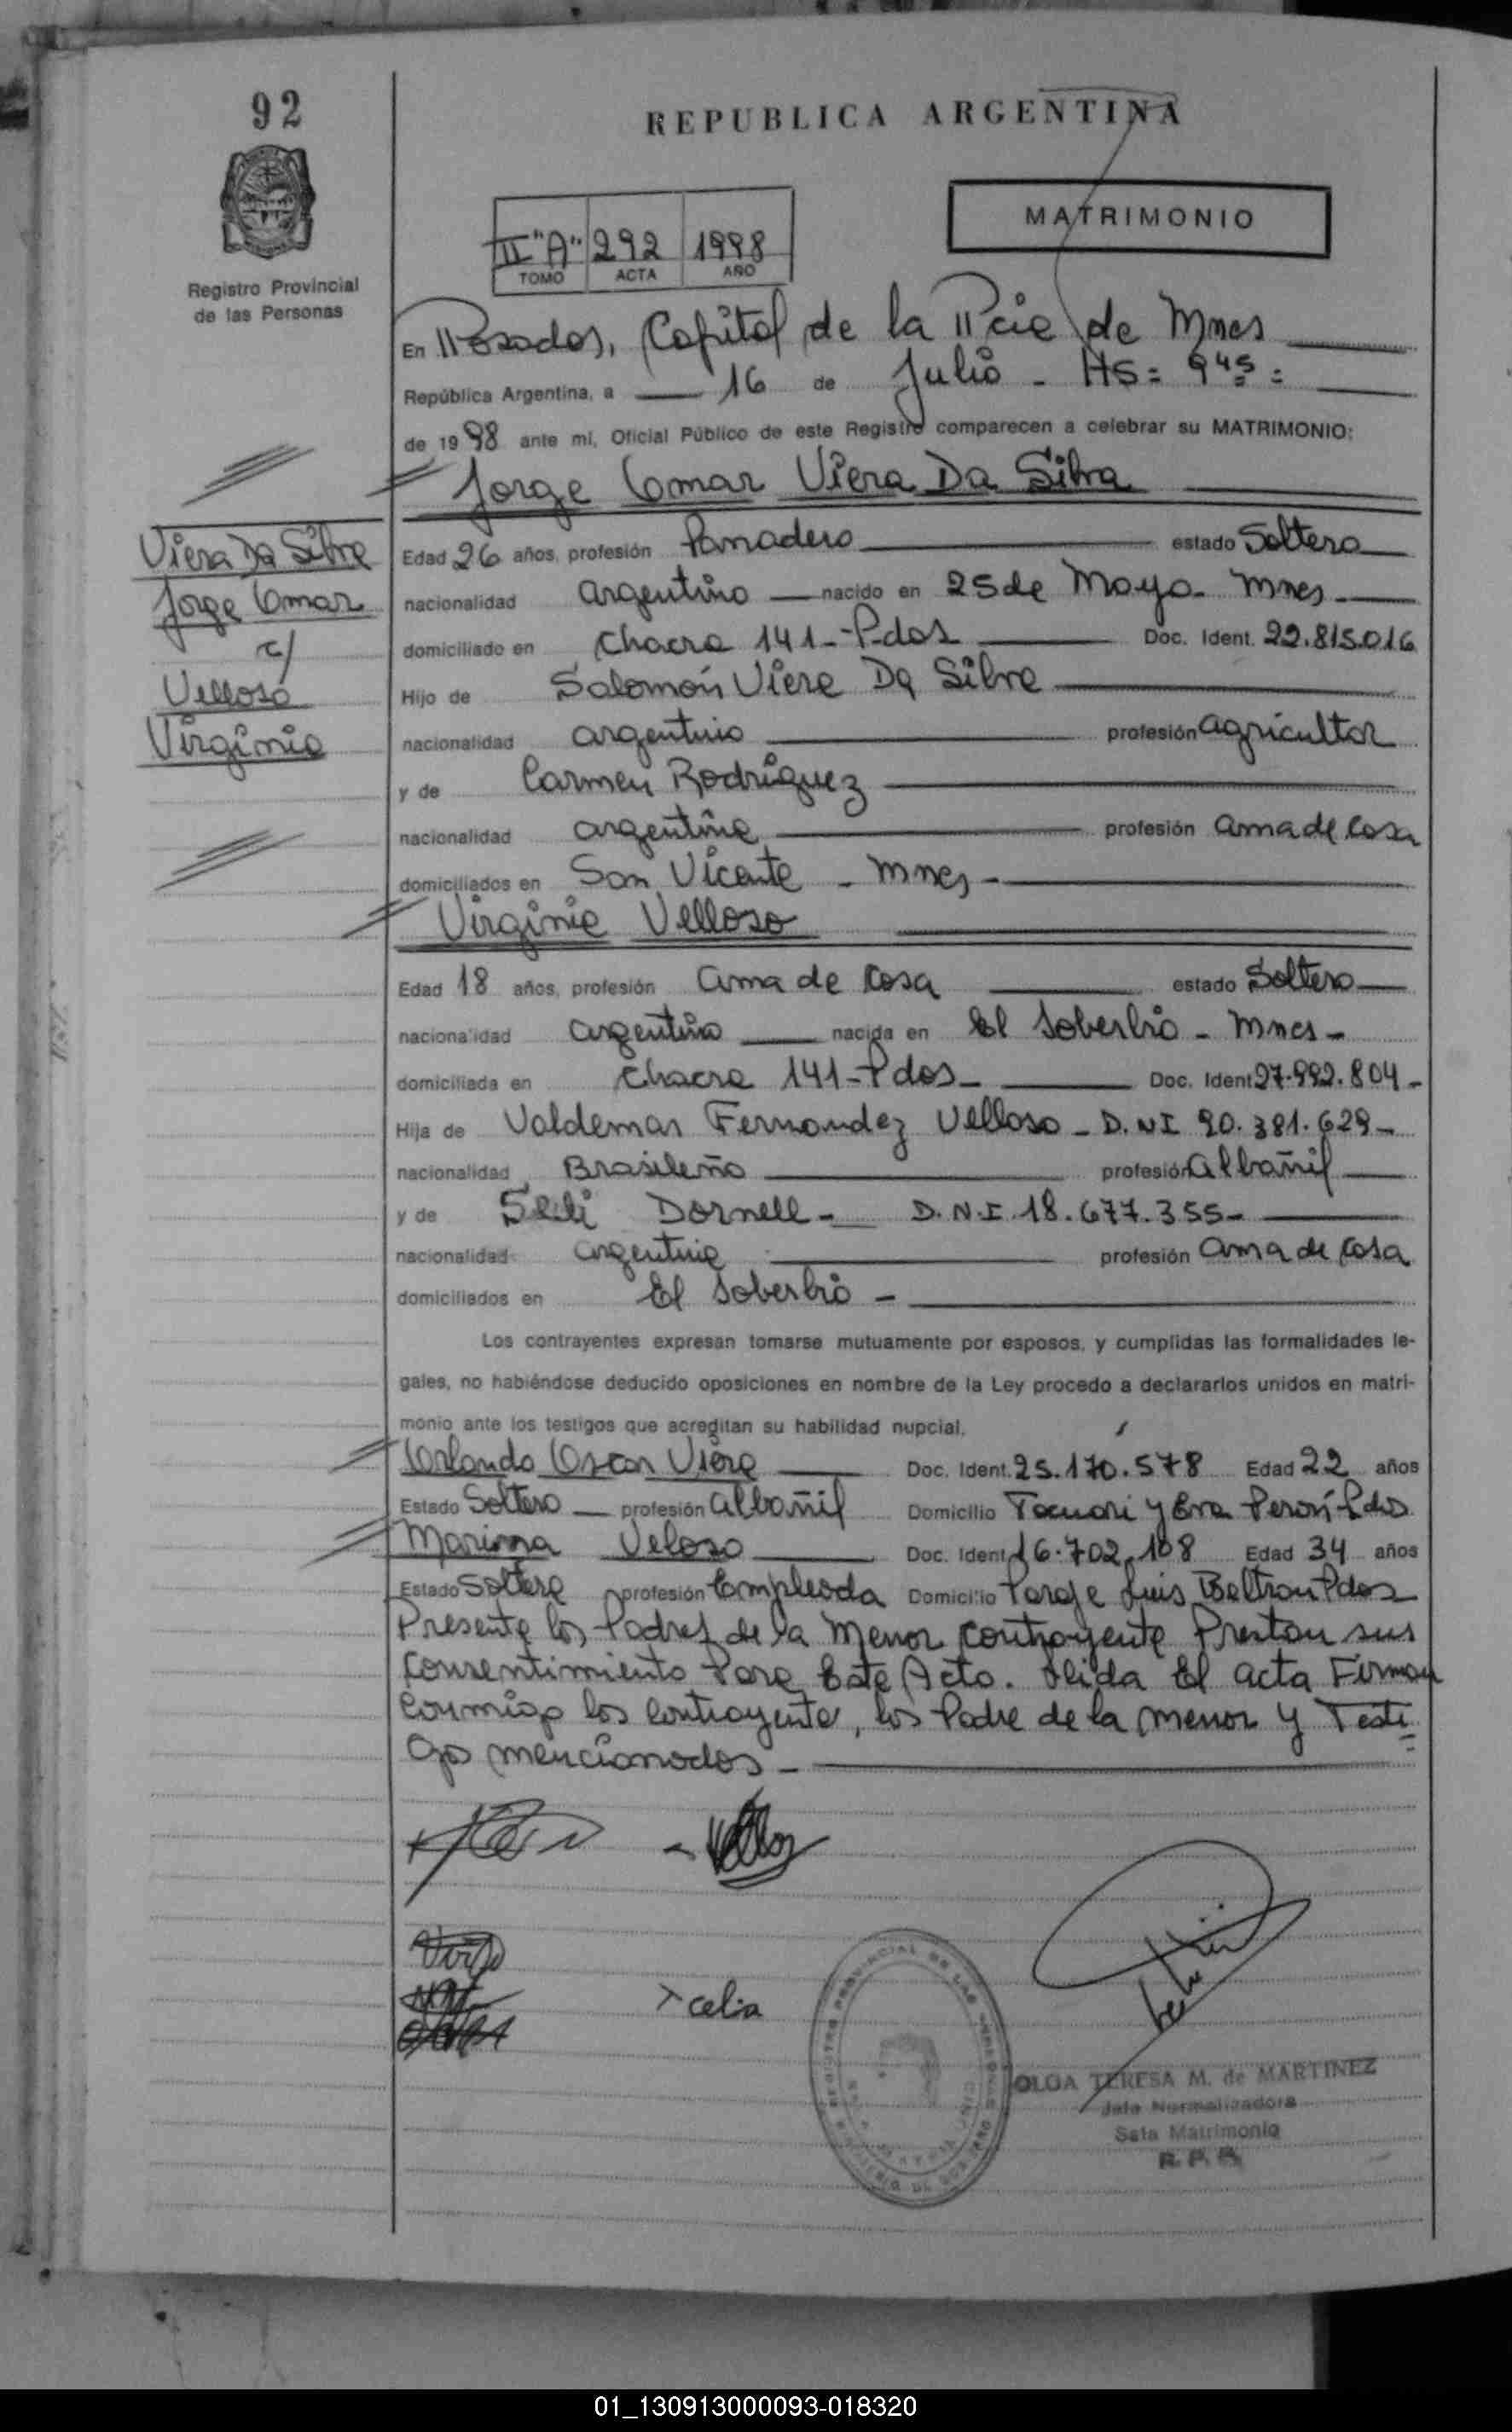 92
REPUBLICA ARGENTINA
Registro Provincial
de las Personas
II "A" 292 1998
TOMO ACTA AÑO
MATRIMONIO
En Posadas, Capital de la Pcia de Mnes
República Argentina, a 16 de Julio - HS = 9 45 =
de 1998 ante mí, Oficial Público de este Registro comparecen a celebrar su MATRIMONIO:
Jorge Omar Viera Da Silva
Viera Da Silva
Jorge Omar
c/
Velloso
Virginia
Edad 26 años, profesión Panadero estado Soltero
nacionalidad argentino nacido en 25 de Mayo - Mnes -
domiciliado en Chacra 141 - Pdas Doc. Ident. 22.815.016
Hijo de Salomón Viera Da Silva
nacionalidad argentino profesión agricultor
y de Carmen Rodríguez
nacionalidad argentina profesión ama de casa
domiciliados en San Vicente - Mnes -
Virginia Velloso
Edad 18 años, profesión ama de casa estado Soltera
nacionalidad argentina nacida en El Soberbio - Mnes -
domiciliada en Chacra 141 - Pdas - Doc. Ident 27.992.804 -
Hija de Valdemar Fernandez Velloso - D.NI 90.381.629 -
nacionalidad Brasileño profesión albañil
y de Dornell - D.N.I 18.677.355 -
nacionalidad argentina profesión ama de casa
domiciliados en El Soberbio -
Los contrayentes expresan tomarse mutuamente por esposos, y cumplidas las formalidades le-
gales, no habiéndose deducido oposiciones en nombre de la Ley procedo a declararlos unidos en matri-
monio ante los testigos que acreditan su habilidad nupcial.
Orlando Oscar Viera Doc. Ident. 25.170.578 Edad 22 años
Estado Soltero profesión albañil Domicilio Tacuari y Eva Perón Pdas
Marina Veloso Doc. Ident 16.702.108 Edad 34 años
Estado Soltera profesión Empleada Domicilio Paraje Luis Beltran Pdas
Presente los Padres de la Menor contrayente Prestan sus
Consentimiento Para Este Acto. Leida El acta Firman
Conmigo los contrayente, los Padre de la menor y Testi
gos mencionados -
celia
OLGA TERESA M. de MARTINEZ
Jefe Normalizadora
Sala Matrimonio
R. P. P.
01_130913000093-018320